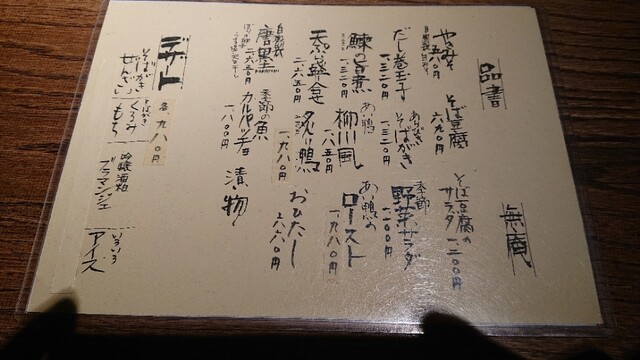 品書
無庵
やきみそ
五八〇円
そば豆腐
六九〇円
そば豆腐の
サラダ 一二〇〇円
だし巻玉子
一三二〇円
あげだし
そばがき
一三二〇円
季節
野菜サラダ
一一〇〇円
鰊の旨煮
一三二〇円
あい鴨
柳川風
一八五〇円
あい鴨の
ロースト
一九八〇円
天ぷら盛合せ
二六五〇円
炙り鴨
一九八〇円
おひたし
六六〇円
自家製
唐墨
二六五〇円
季節の魚
カルパッチョ
一八〇〇円
漬物
デザート
各九八〇円
そばがき
ぜんざい
そばがき
くるみ
もち
吟醸酒粕
ブラマンジェ
いろいろ
アイス